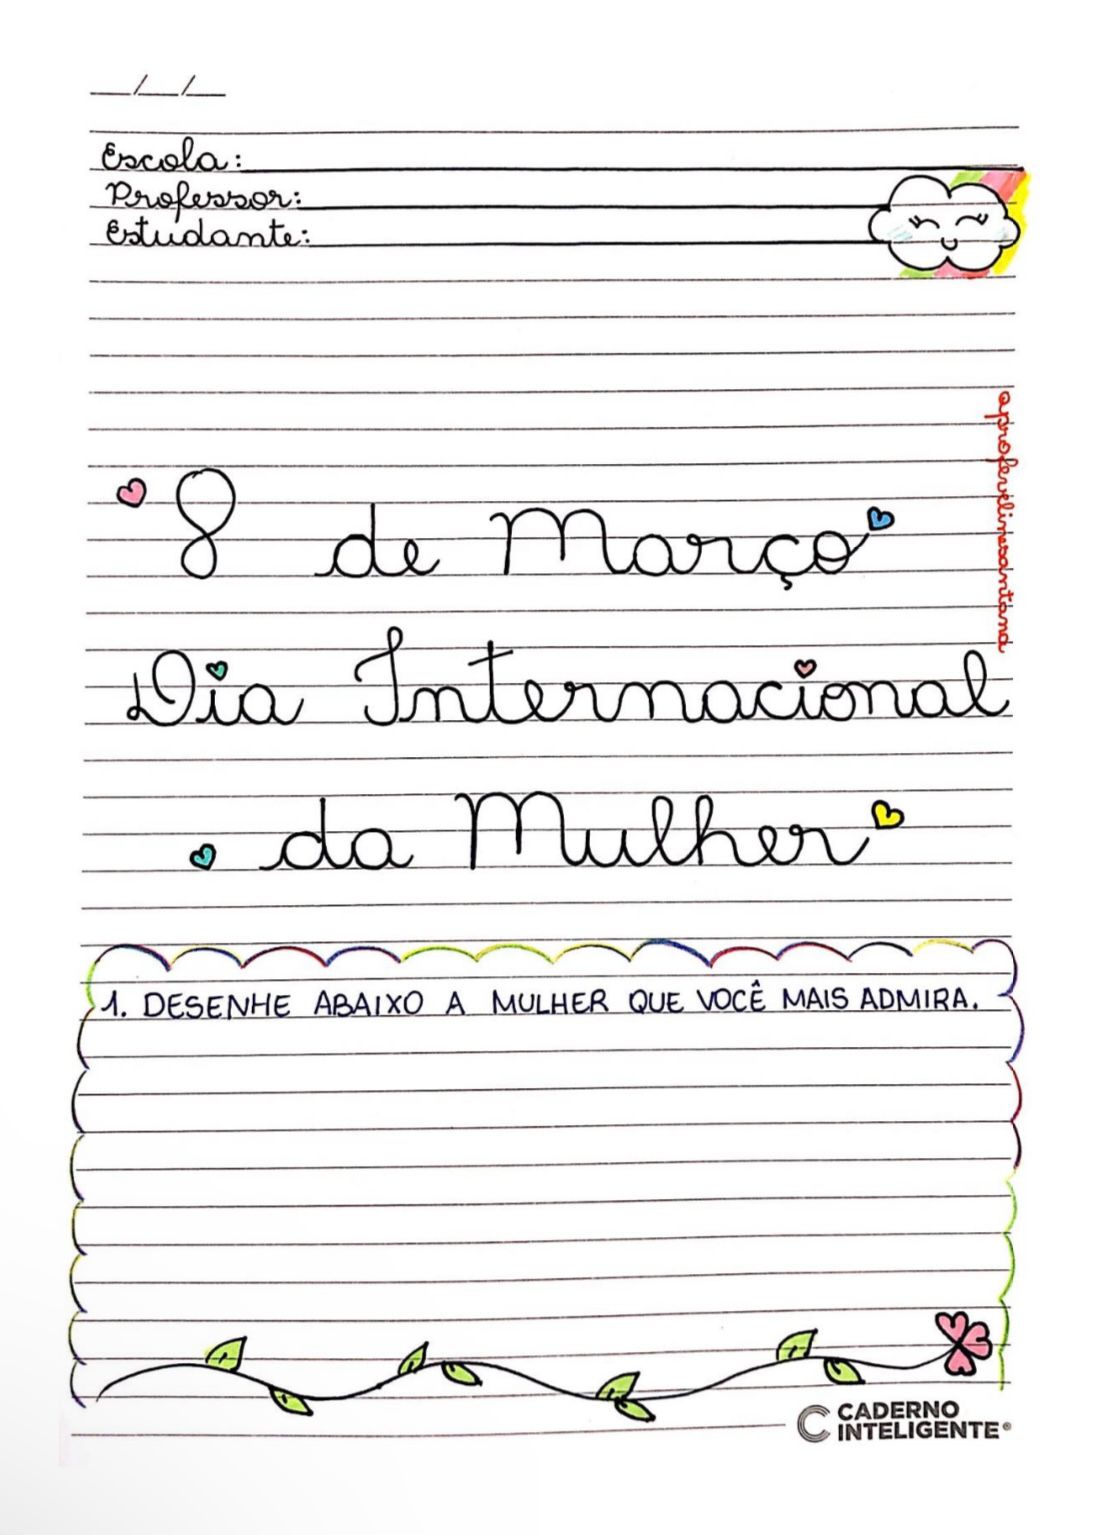 __/__/__
Escola:
Professor:
Estudante:
aprofevelinesantana
8 de Março
Dia Internacional
da Mulher
1. DESENHE ABAIXO A MULHER QUE VOCÊ MAIS ADMIRA.
CADERNO
INTELIGENTE®